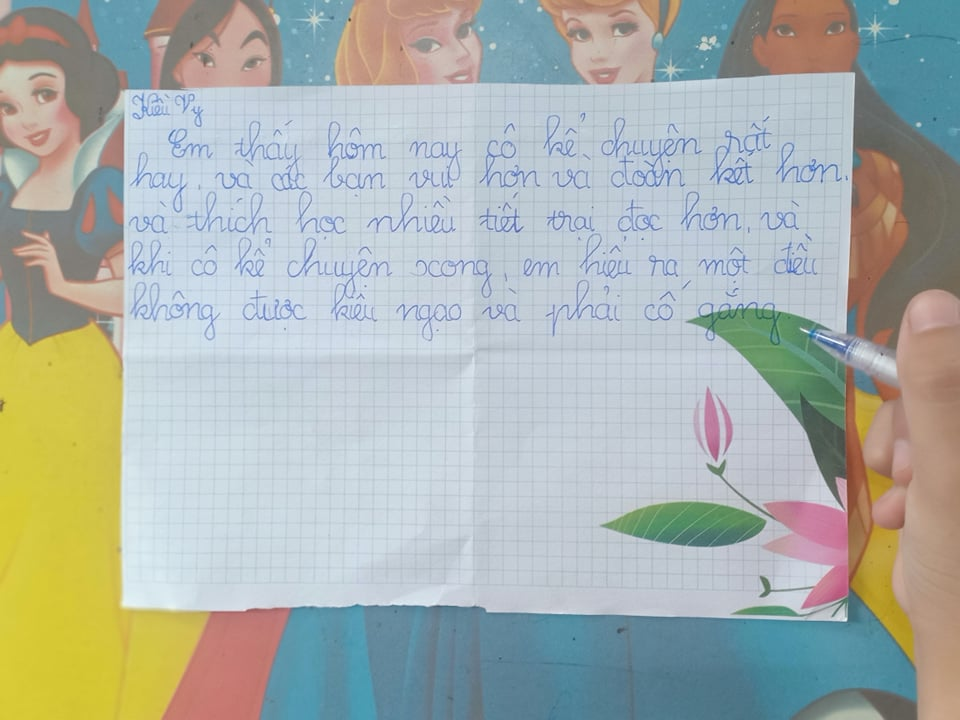 Kiều Vy
Em thấy hôm nay cô kể chuyện rất
hay, và các bạn vui hơn và đoàn kết hơn.
và thích học nhiều tiết trại đọc hơn, và
khi cô kể chuyện xong, em hiểu ra một điều
không được kiêu ngạo và phải cố gắng.